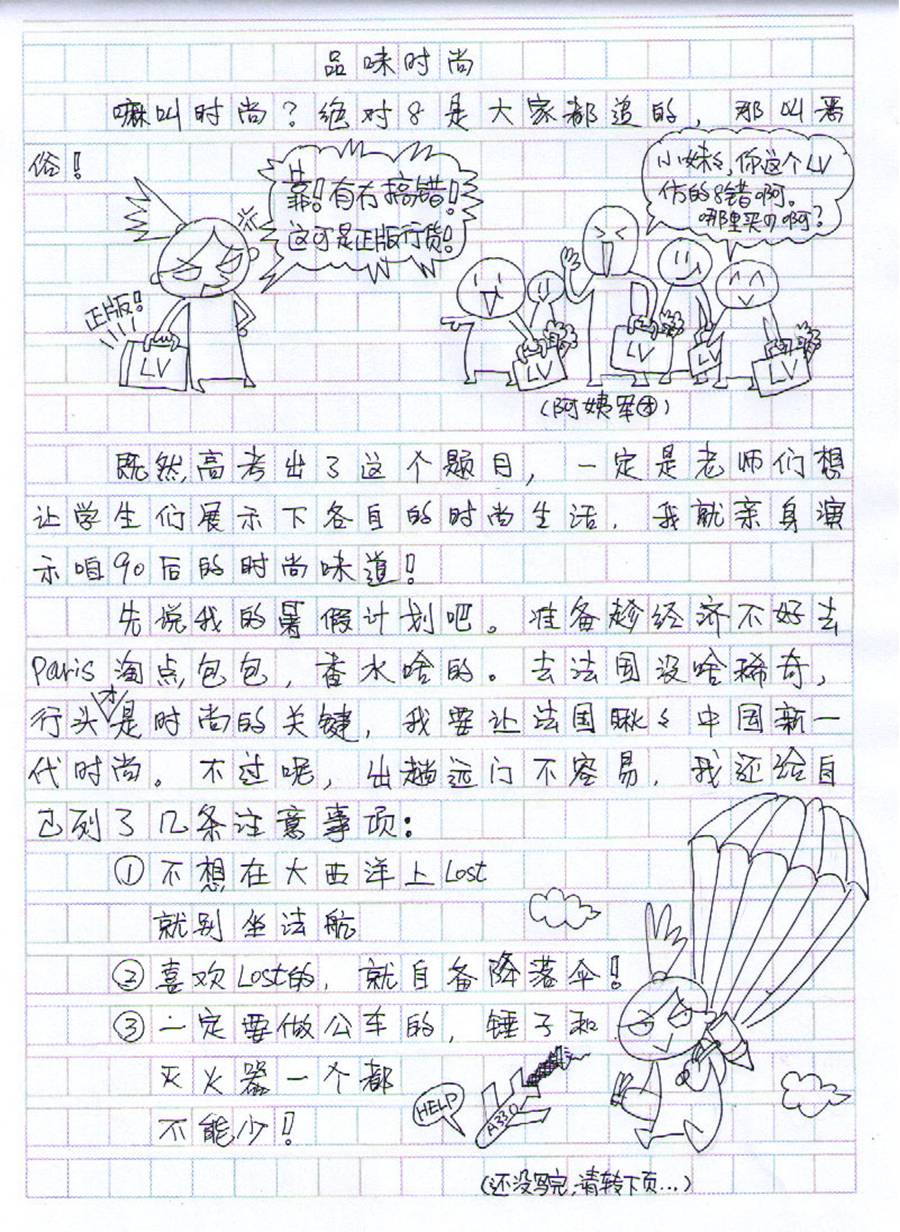 品味时尚
嘛叫时尚？绝对8是大家都追的，那叫恶
俗！
靠！有冇搞错！
这可是正版行货！
小妹々，你这个LV
仿的8错啊。
哪里买の啊？
正版！
LV
LV
LV
LV
LV
（阿姨军团）
既然高考出了这个题目，一定是老师们想
让学生们展示下各自的时尚生活，我就亲身演
示咱90后的时尚味道！
先说我的暑假计划吧。准备趁经济不好去
Paris淘点包包，香水啥的。去法国没啥稀奇，
行头才是时尚的关键，我要让法国瞅々中国新一
代时尚。不过呢，出趟远门不容易，我还给自
己列了几条注意事项：
①不想在大西洋上Lost
就别坐法航
②喜欢Lost的，就自备降落伞！
③一定要做公车的，锤子和
灭火器一个都
不能少！
HELP
A330
（还没写完，请转下页...）